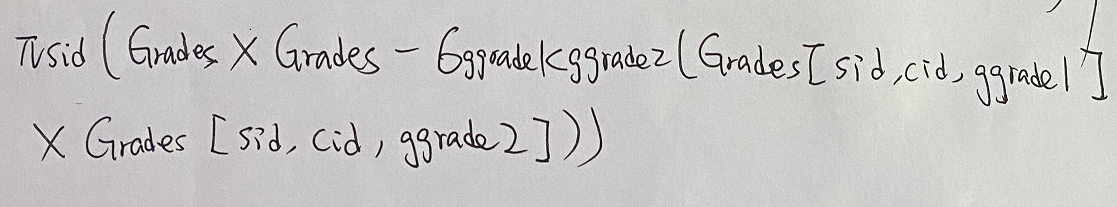 πsid (Grades X Grades - σggrade1<ggrade2(Grades[sid,cid,ggrade1]
X Grades [sid, cid, ggrade2]))